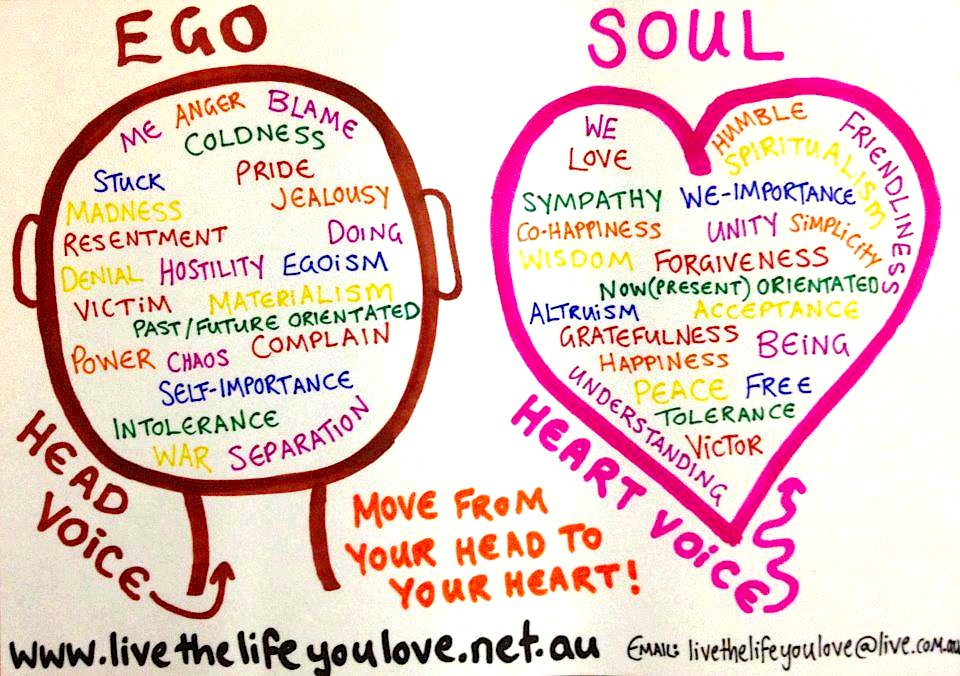 EGO
ME ANGER BLAME
COLDNESS
STUCK PRIDE
MADNESS JEALOUSY
RESENTMENT DOING
DENIAL HOSTILITY EGOiSM
VICTiM MATERiALISM
PAST/FUTURE ORIENTATED
POWER CHAOS COMPLAIN
SELF-IMPORTANCE
INTOLERANCE
WAR SEPARATION
HEAD
VOiCE
SOUL
WE HUMBLE FRIENDLINESS
LOVE SPIRITUALISM
SYMPATHY WE-IMPORTANCE
CO-HAPPINESS UNITY SiMPLiCiTY
WISDOM FORGIVENESS
NOW(PRESENT) ORIENTATED
ALTRUiSM ACCEPTANCE
GRATEFULNESS BEiNG
HAPPINESS
UNDERSTANDING PEACE FREE
TOLERANCE
VICTOR
HEART VOiCE
MOVE FROM
YOUR HEAD TO
YOUR HEART!
www.livethelifeyoulove.net.au
EMAIL: livethelifeyoulove@live.com.au